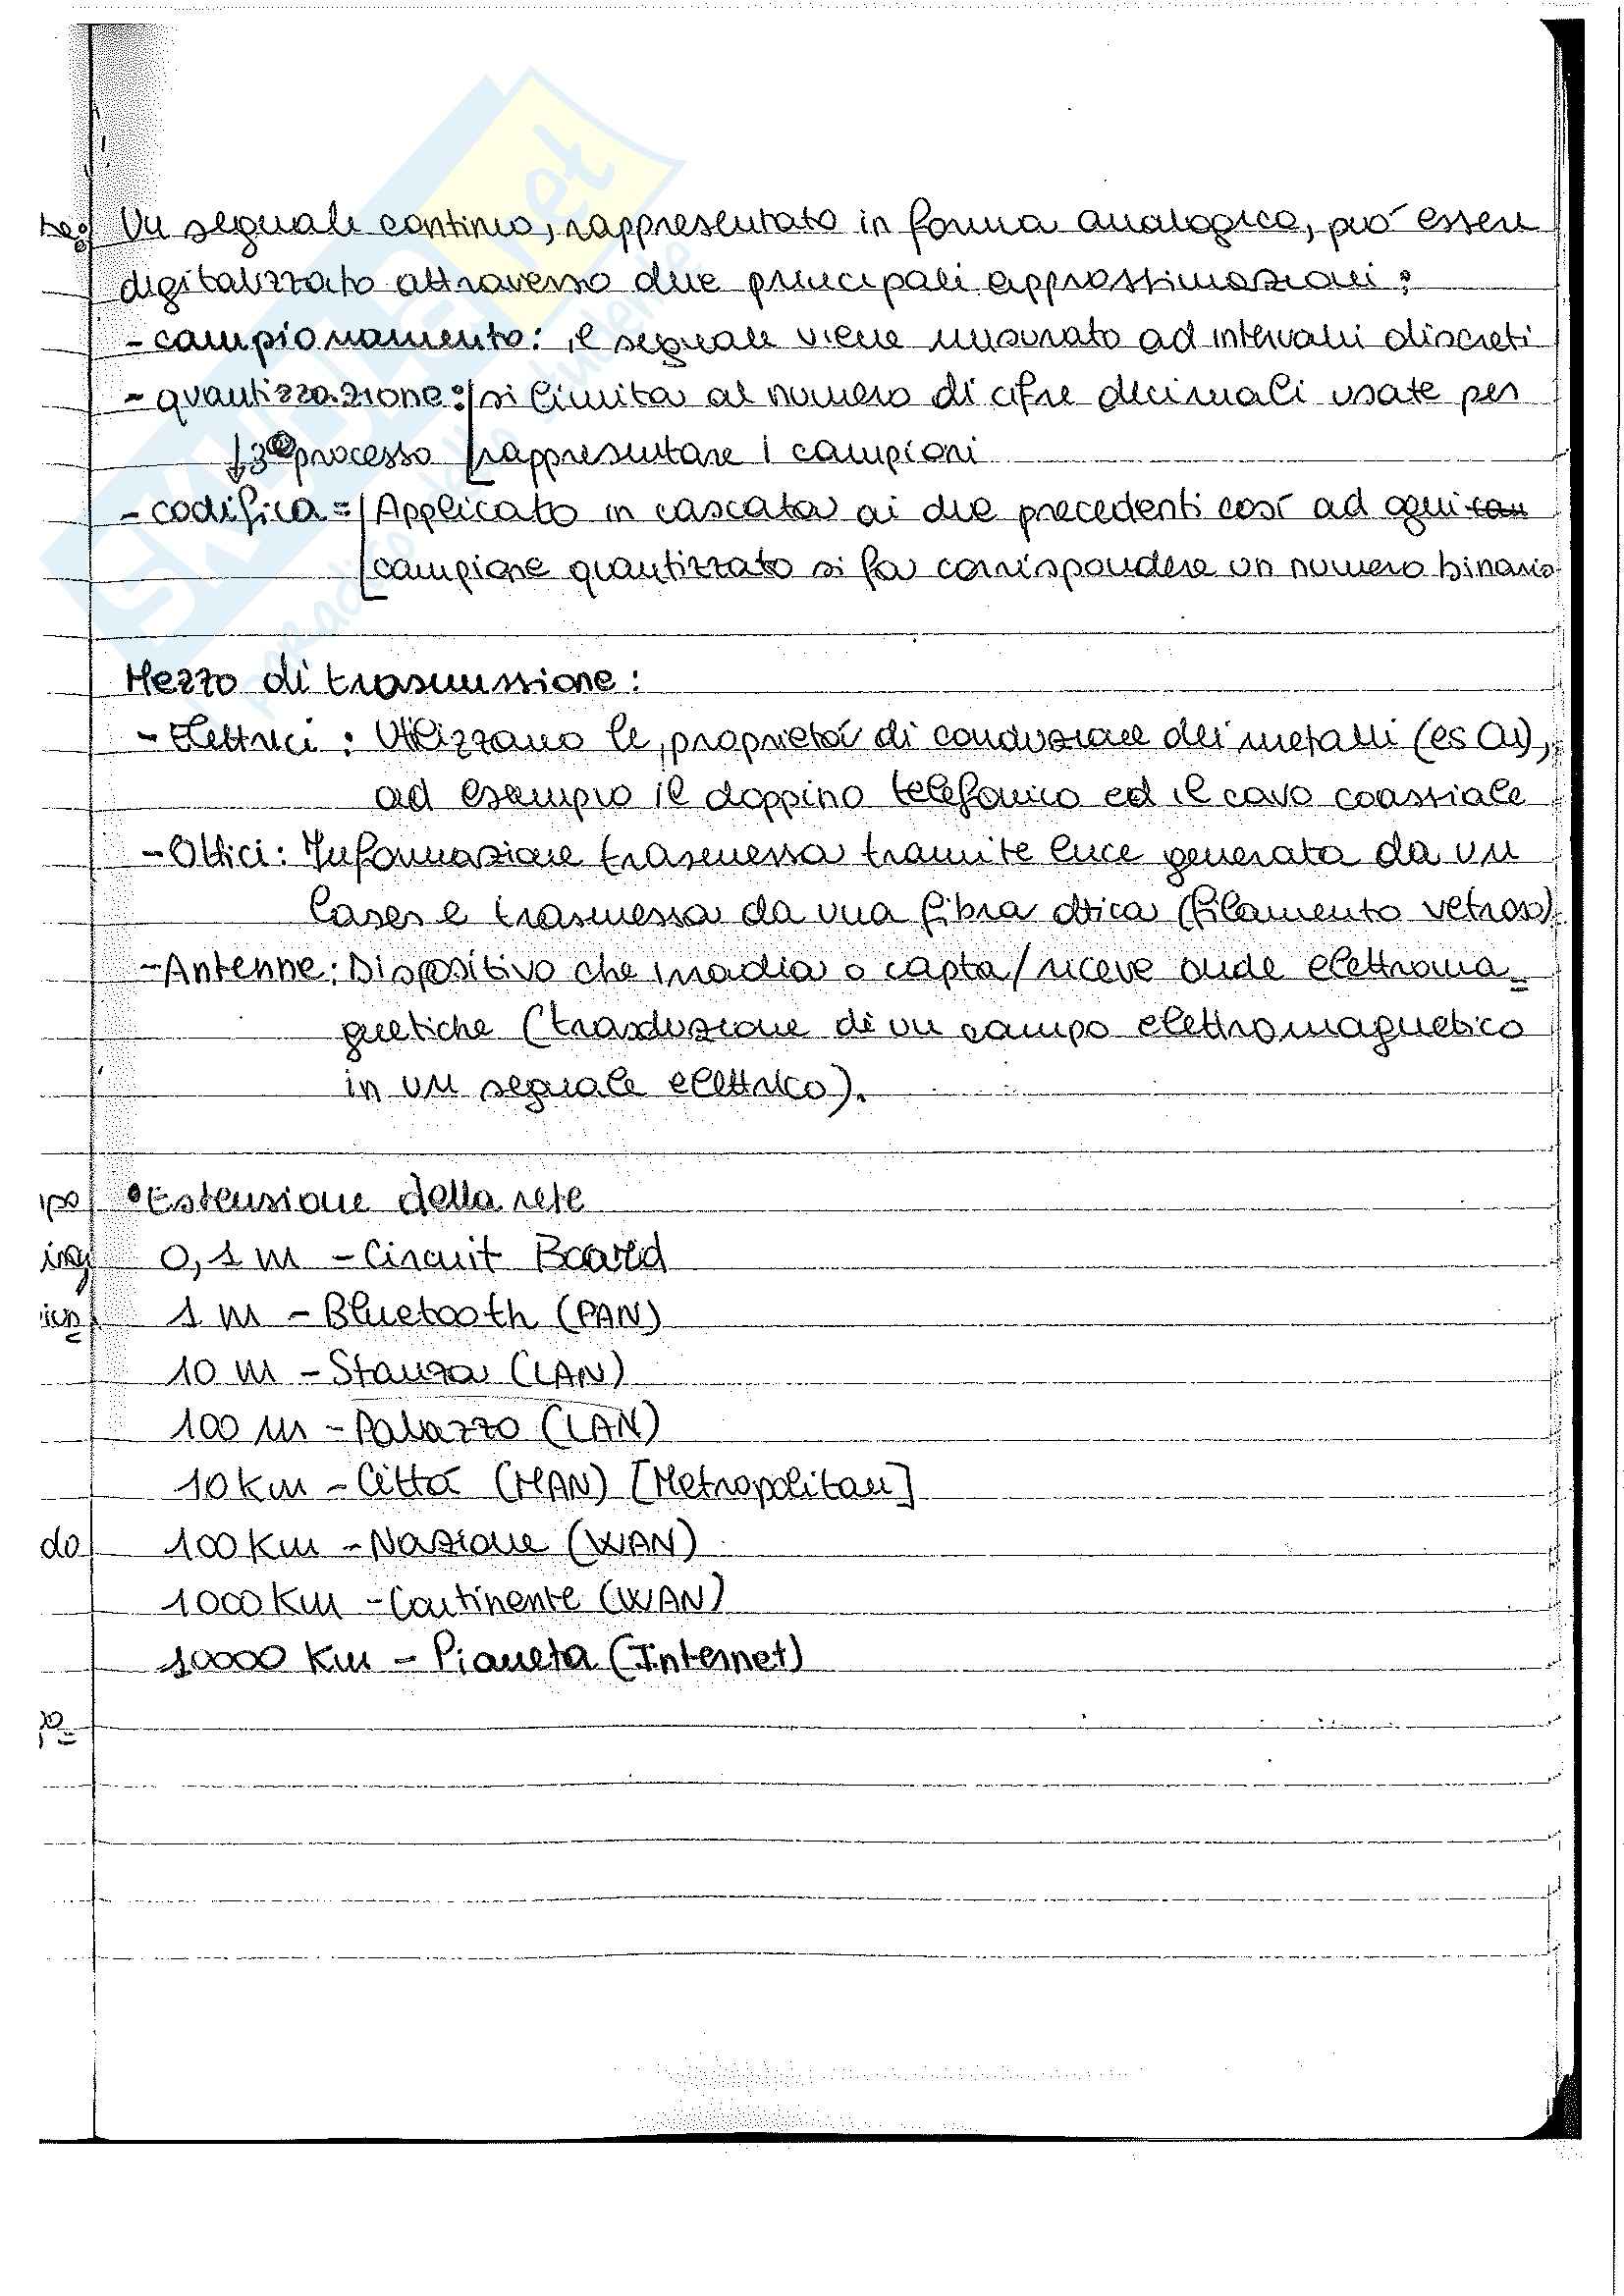 Un segnale continuo, rappresentato in forma analogica, può essere
digitalizzato attraverso due principali approssimazioni:
- campionamento: il segnale viene misurato ad intervalli discreti
- quantizzazione: si limita al numero di cifre decimali usate per
↓3° processo rappresentare i campioni
- codifica = Applicato in cascata ai due precedenti così ad ogni cam
campione quantizzato si fa corrispondere un numero binario
Mezzo di trasmissione:
- Elettrici: Utilizzano le proprietà di conduzione dei metalli (es Cu),
ad esempio il doppino telefonico ed il cavo coassiale
- Ottici: Informazione trasmessa tramite luce generata da un
laser e trasmessa da una fibra ottica (filamento vetroso)
- Antenne: Dispositivo che irradia o capta/riceve onde elettroma=
gnetiche (trasduzione di un campo elettromagnetico
in un segnale elettrico).
• Estensione della rete
0,1 m - Circuit Board
1 m - Bluetooth (PAN)
10 m - Stanza (LAN)
100 m - Palazzo (LAN)
10 Km - Città (MAN) [Metropolitan]
do 100 Km - Nazione (WAN)
1000 Km - Continente (WAN)
10000 Km - Pianeta (Internet)